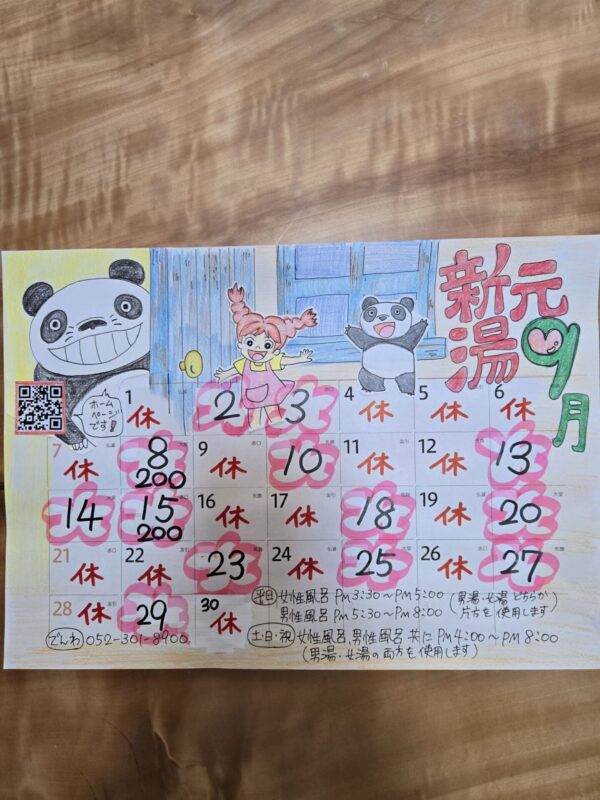 新元
湯
9月
ホーム
ページ
です!
1 2 3 4 5 6
休 休 休 休
7 8 9 10 11 12 13
休 200 休 休 休
14 15 16 17 18 19 20
200 休 休 休
21 22 23 24 25 26 27
休 休 休 休
28 29 30
休 休
平日 女性風呂 PM3:30〜PM5:00 (男湯・女湯 どちらか
男性風呂 PM5:30〜PM8:00 片方を使用します)
でんわ 052-301-8900
土・日・祝 女性風呂 男性風呂 共に PM4:00〜PM8:00
(男湯・女湯の両方を使用します)